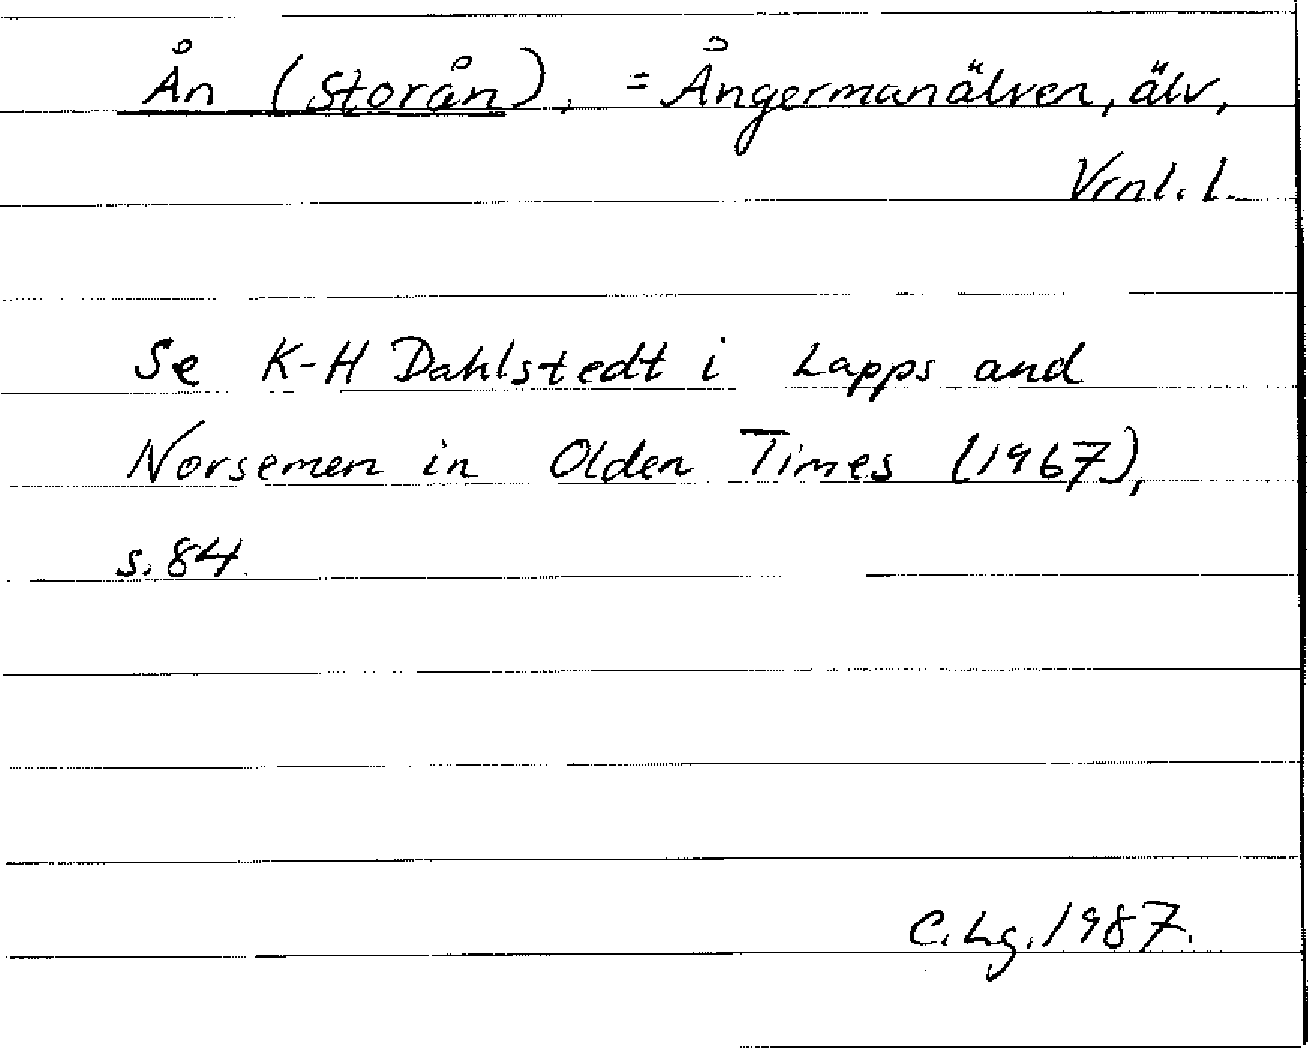 Ån (Storån), = Ångermanälven, älv,
Vrnl. l.
Se K-H Dahlstedt i Lapps and
Norsemen in Olden Times (1967),
s. 84.
C. Lg. 1987.